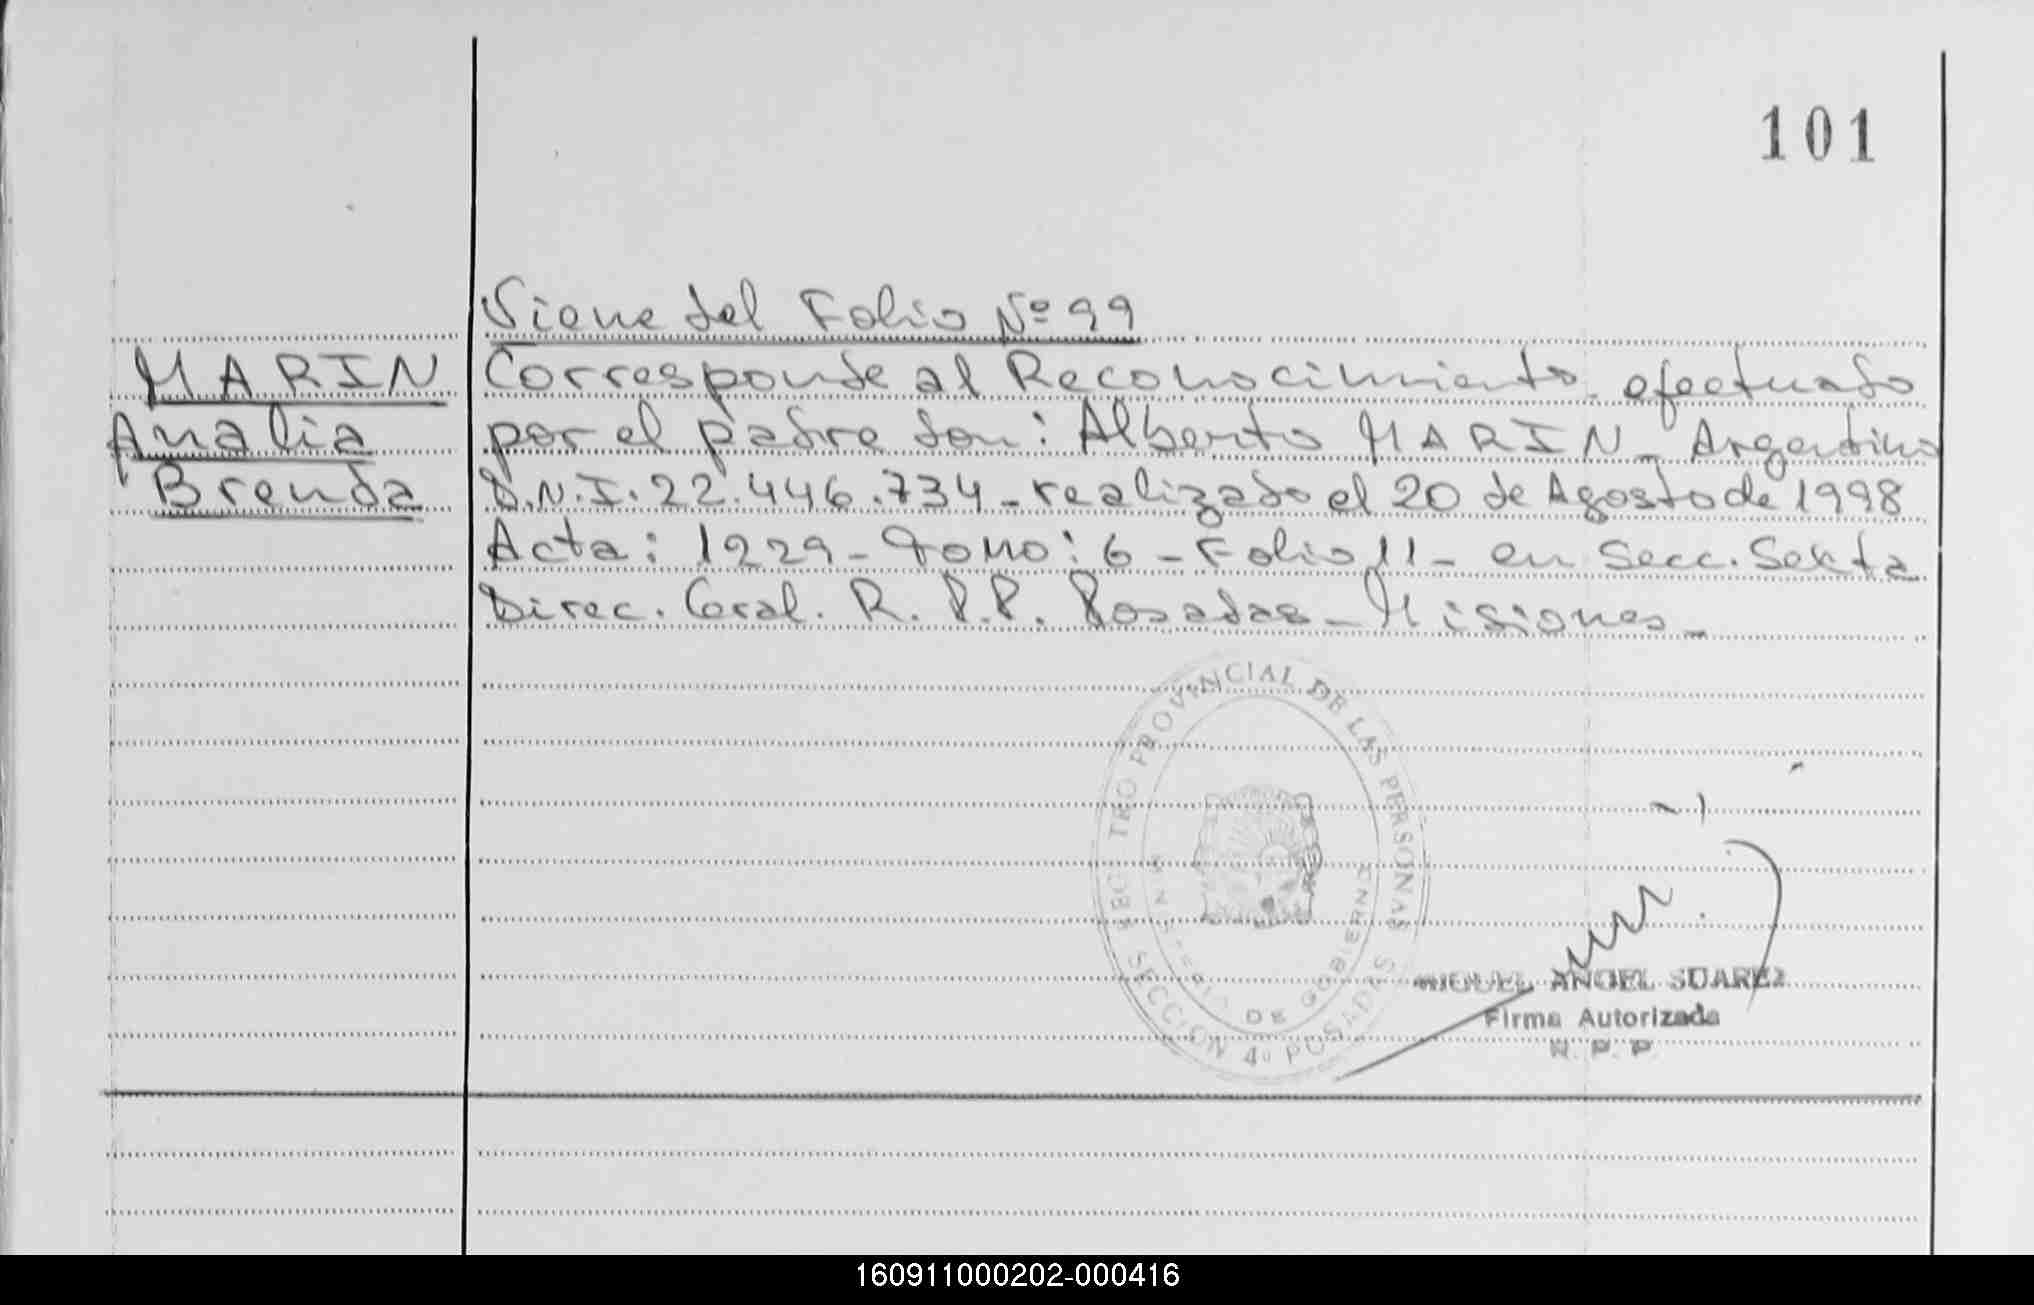 101
Viene del Folio Nº 99
MARIN
Analia
Brenda
Corresponde al Reconocimiento efectuado
por el padre don: Alberto MARIN - Argentino
D.N.I. 22.446.734 - realizado el 20 de Agosto de 1998
Acta: 1229 - Tomo: 6 - Folio 11 - en Secc. Sexta
Direc. Gral. R. P.P. Posadas - Misiones -
REGISTRO PROVINCIAL DE LAS PERSONAS
SECCION 4º POSADAS
MINISTERIO DE GOBIERNO
MIGUEL ANGEL SUAREZ
Firma Autorizada
R. P. P.
160911000202-000416